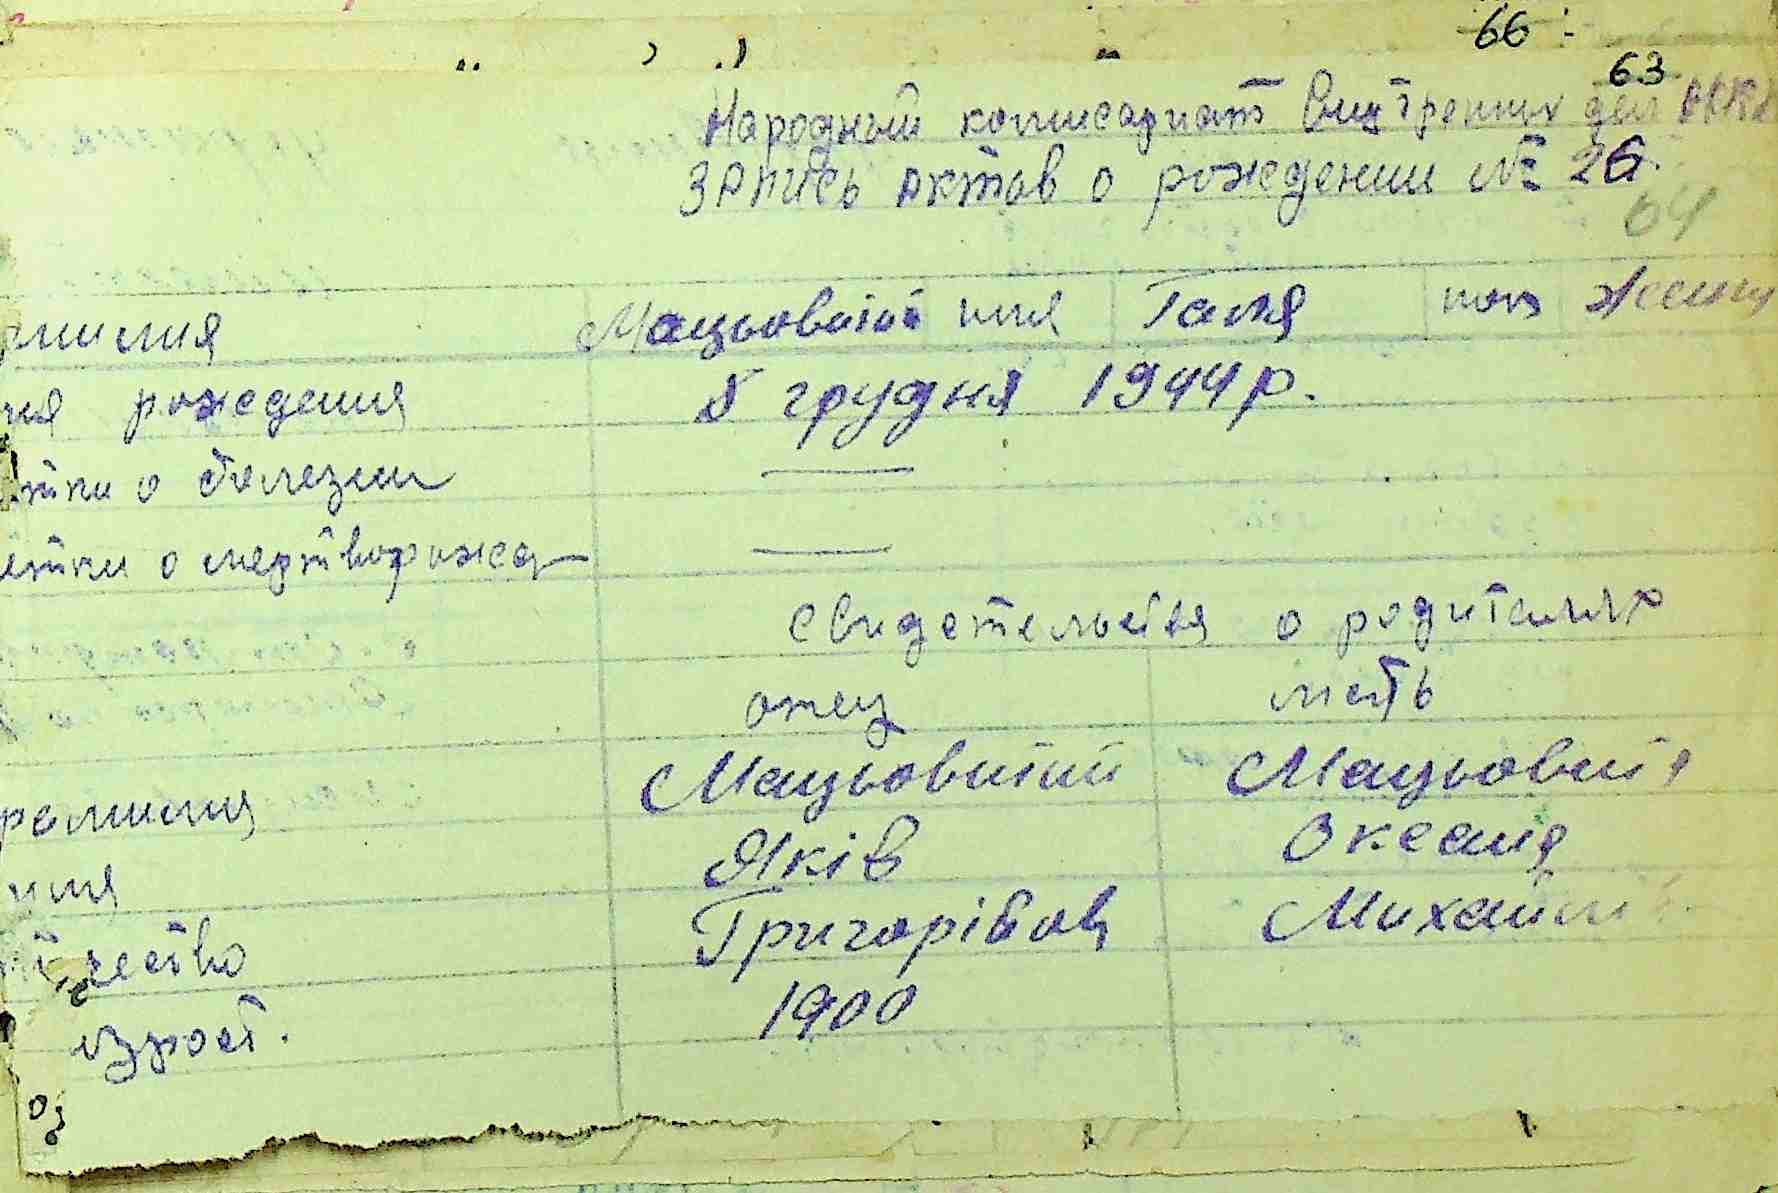 66
63
Народный комиссариат Внутренних дел
Запись актов о рождении № 26.
64
милия Мацьовитий имя Галя пол Женщ
ия рождения 8 грудня 1944 р.
тки о болезни
етки о мертворожд
Свидетельства о родителях
отец мать
фамилия Мацьовитий Мацьовита
имя Яків Оксана
отчество Григорівов Михайлі
возраст. 1900